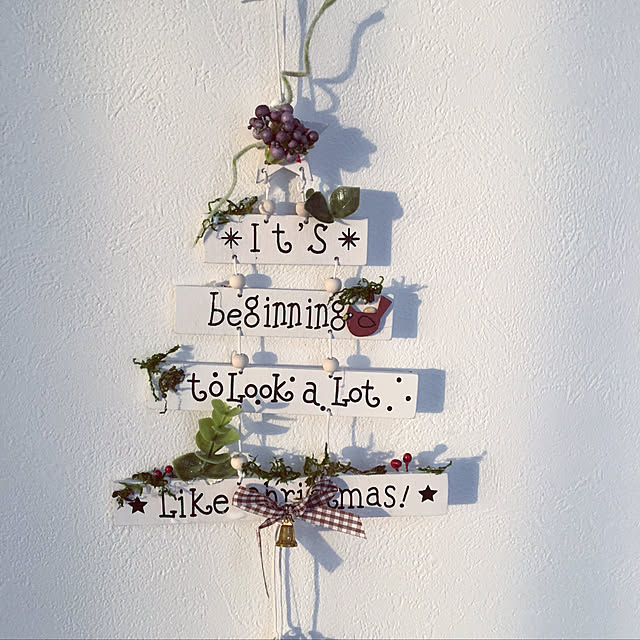 *It's*
beginning
to Look a Lot
Like Christmas!